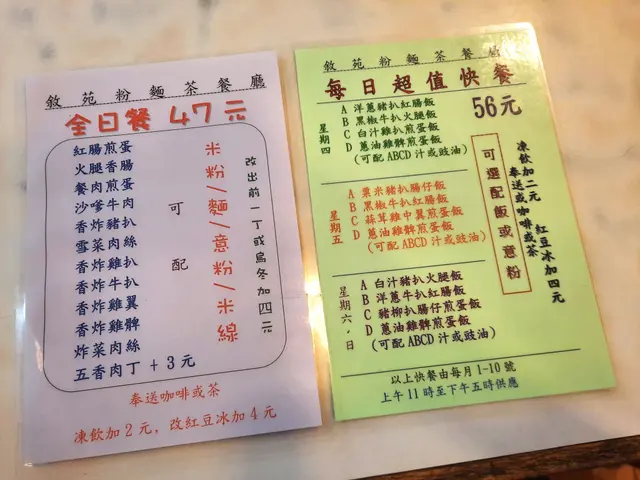 敘苑粉麵茶餐廳
全日餐 47元
紅腸煎蛋
火腿香腸
餐肉煎蛋
沙嗲牛肉
香炸豬扒
雪菜肉絲
香炸雞扒
香炸牛扒
香炸雞翼
香炸雞髀
炸菜肉絲
五香肉丁 + 3元
可配
米粉/麵/意粉/米線
改出前一丁或烏冬加四元
奉送咖啡或茶
凍飲加2元，改紅豆冰加4元
敘苑粉麵茶餐廳
每日超值快餐
56元
星期四
A 洋蔥豬扒紅腸飯
B 黑椒牛扒火腿飯
C 白汁雞扒煎蛋飯
D 蔥油雞髀煎蛋飯
(可配ABCD汁或豉油)
星期五
A 粟米豬扒腸仔飯
B 黑椒牛扒紅腸飯
C 蒜茸雞中翼煎蛋飯
D 蔥油雞髀煎蛋飯
(可配ABCD汁或豉油)
星期六．日
A 白汁豬扒火腿飯
B 洋蔥牛扒紅腸飯
C 豬柳腸仔煎蛋飯
D 蔥油雞髀煎蛋飯
(可配ABCD汁或豉油)
可選配飯或意粉
奉送咖啡或茶
凍飲加二元 紅豆冰加四元
以上快餐由每月1~10號
上午11時至下午五時供應